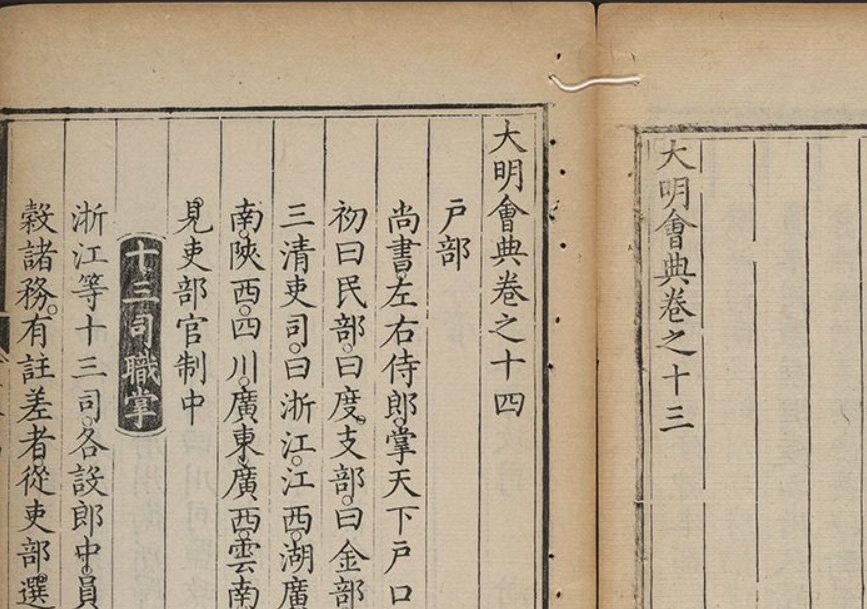 大明會典卷之十三
大明會典卷之十四
戸部
尚書左右侍郎。掌天下戸口
初曰民部。曰度支部。曰金部
三清吏司。曰浙江。江西。湖廣
南。陝西。四川。廣東。廣西。雲南
見吏部官制中
十三司職掌
浙江等十三司。各設郎中。員
穀諸務。有註差者。從吏部選